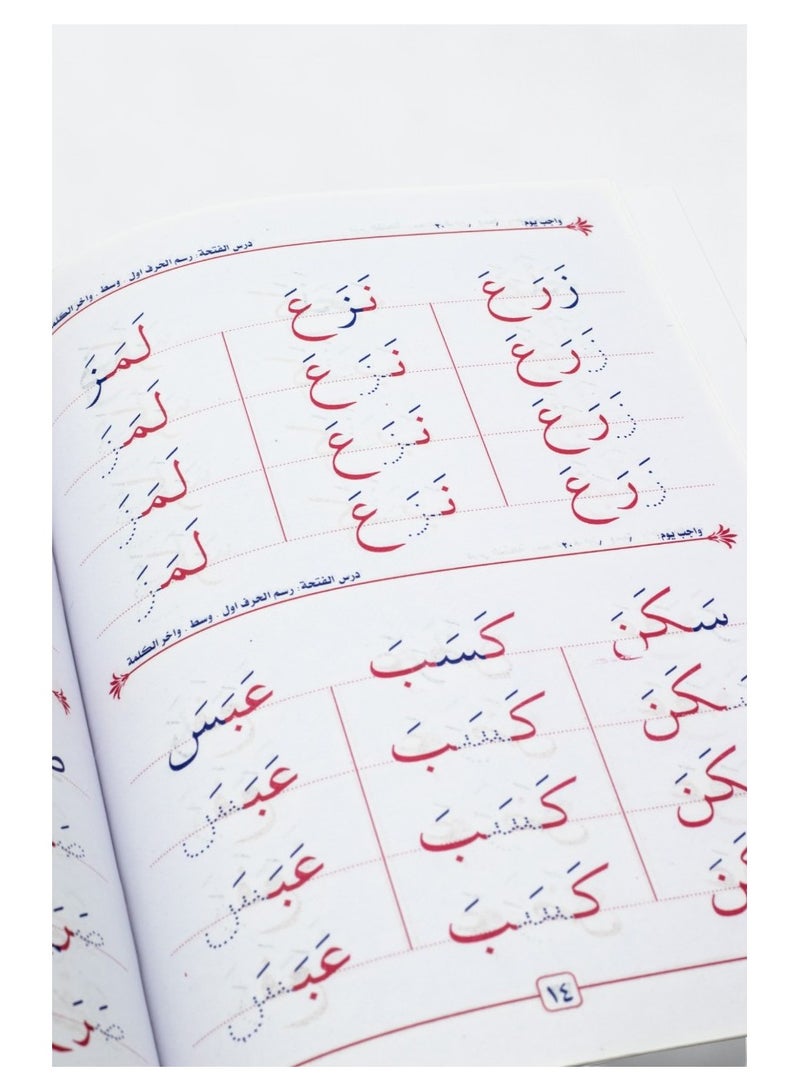 واجب يوم: / / ٢٠
درس الفتحة: رسم الحرف اول . وسط . وآخر الكلمة
زَرَعَ نَزَعَ لَمَزَ
زَرَعَ نَزَعَ لَمَزَ
زَرَعَ نَزَعَ لَمَزَ
زَرَعَ نَزَعَ لَمَزَ
واجب يوم: / / ٢٠
درس الفتحة: رسم الحرف اول . وسط . وآخر الكلمة
سَكَنَ كَسَبَ عَبَسَ
سَكَنَ كَسَبَ عَبَسَ
كَنَ كَسَبَ عَبَسَ
كَسَبَ عَبَسَ
١٤